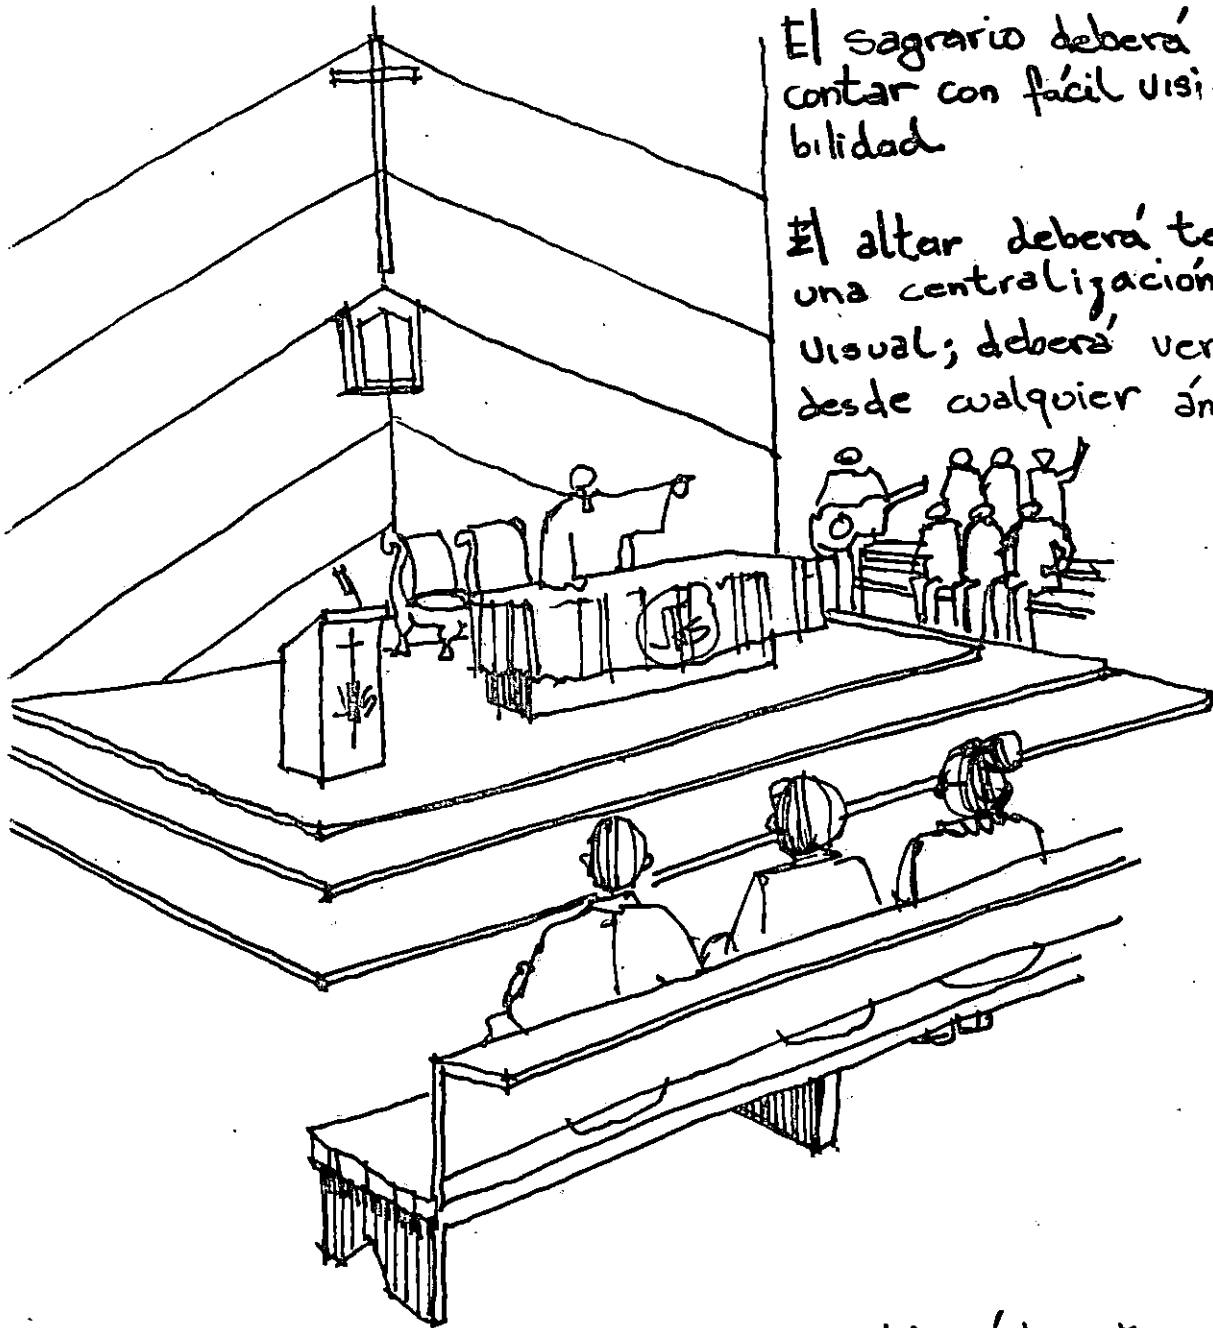 El sagrario deberá
contar con fácil visi-
bilidad
El altar deberá te
una centralización
visual; deberá ver
desde cualquier án
JHS
JHS